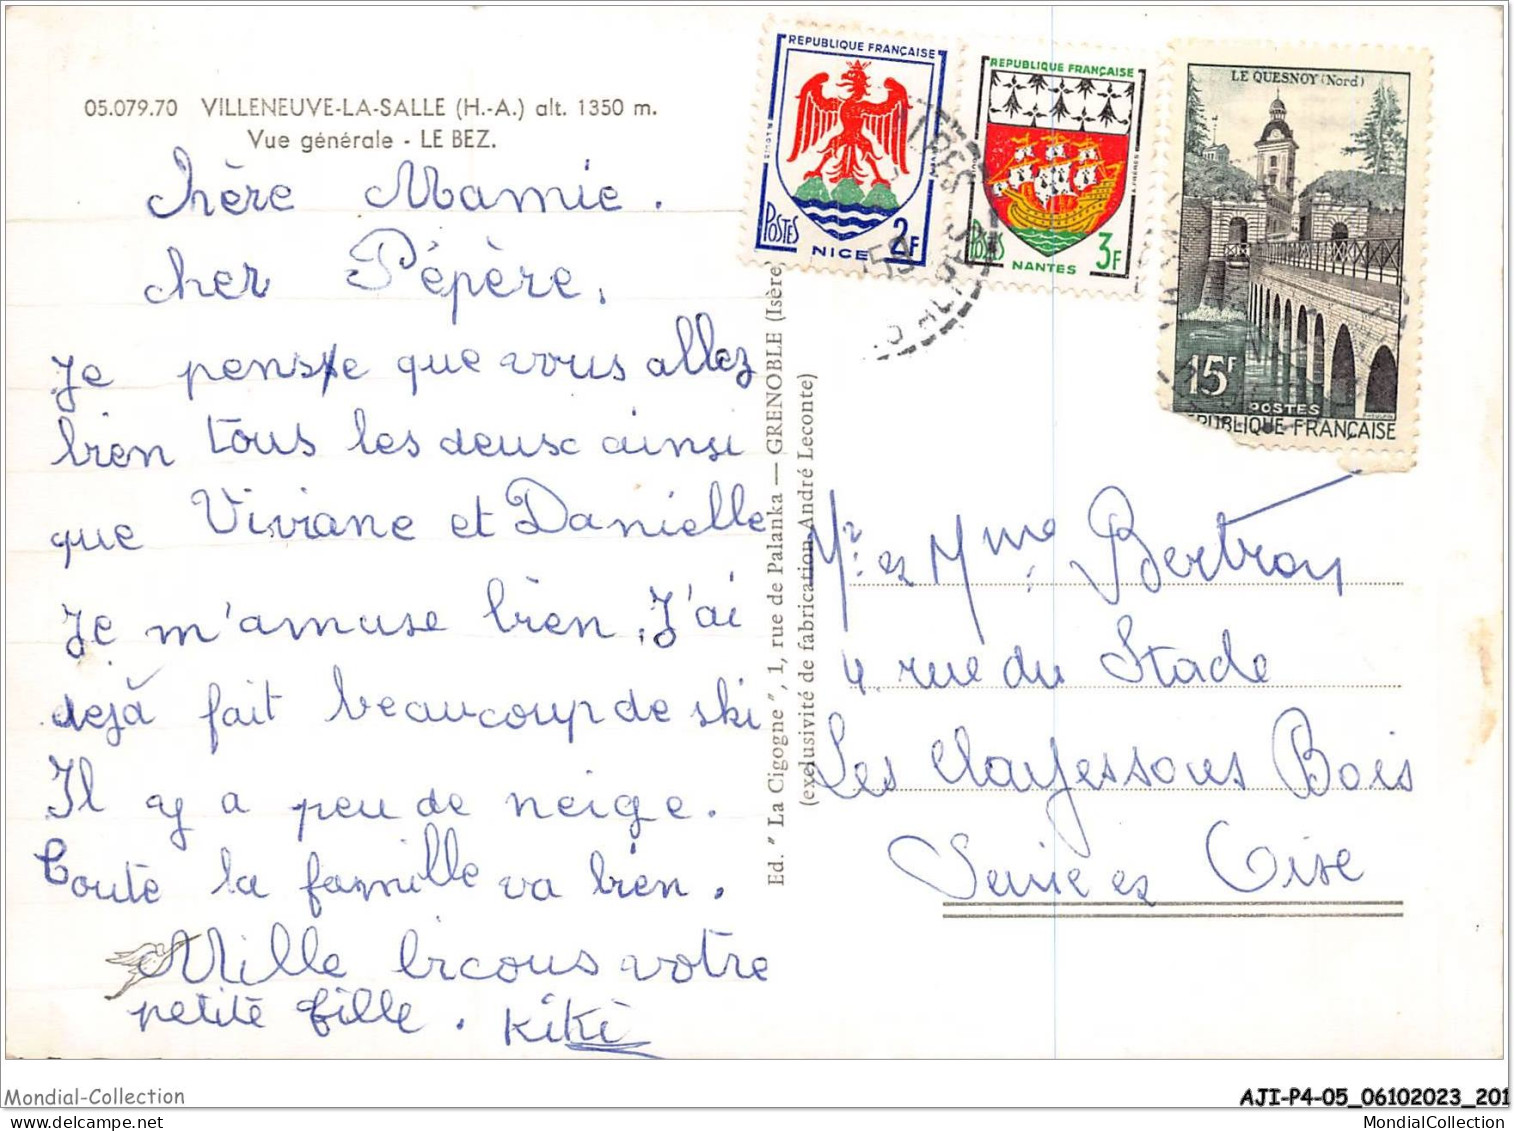 05.079.70 VILLENEUVE-LA-SALLE (H.-A.) alt. 1350 m.
Vue générale - LE BEZ.
Chère Mamie.
Cher Pépère,
Je pense que vous allez
bien tous les deux ainsi
que Viviane et Danielle
Je m'amuse bien, J'ai
dejà fait beaucoup de ski
Il y a peu de neige.
Toute la famille va bien.
Mille bisous votre
petite fille. Kiki
Ed. "La Cigogne", 1, rue de Palanka — GRENOBLE (Isère)
(exclusivité de fabrication André Leconte)
REPUBLIQUE FRANÇAISE
POSTES
2F
NICE
REPUBLIQUE FRANÇAISE
POSTES
3F
NANTES
LE QUESNOY (Nord)
15F
POSTES
REPUBLIQUE FRANÇAISE
Mr et Mme Bertron
4 rue du Stade
Les Clayessous Bois
Seine et Oise
Mondial-Collection
AJI-P4-05_06102023_201
MondialCollection